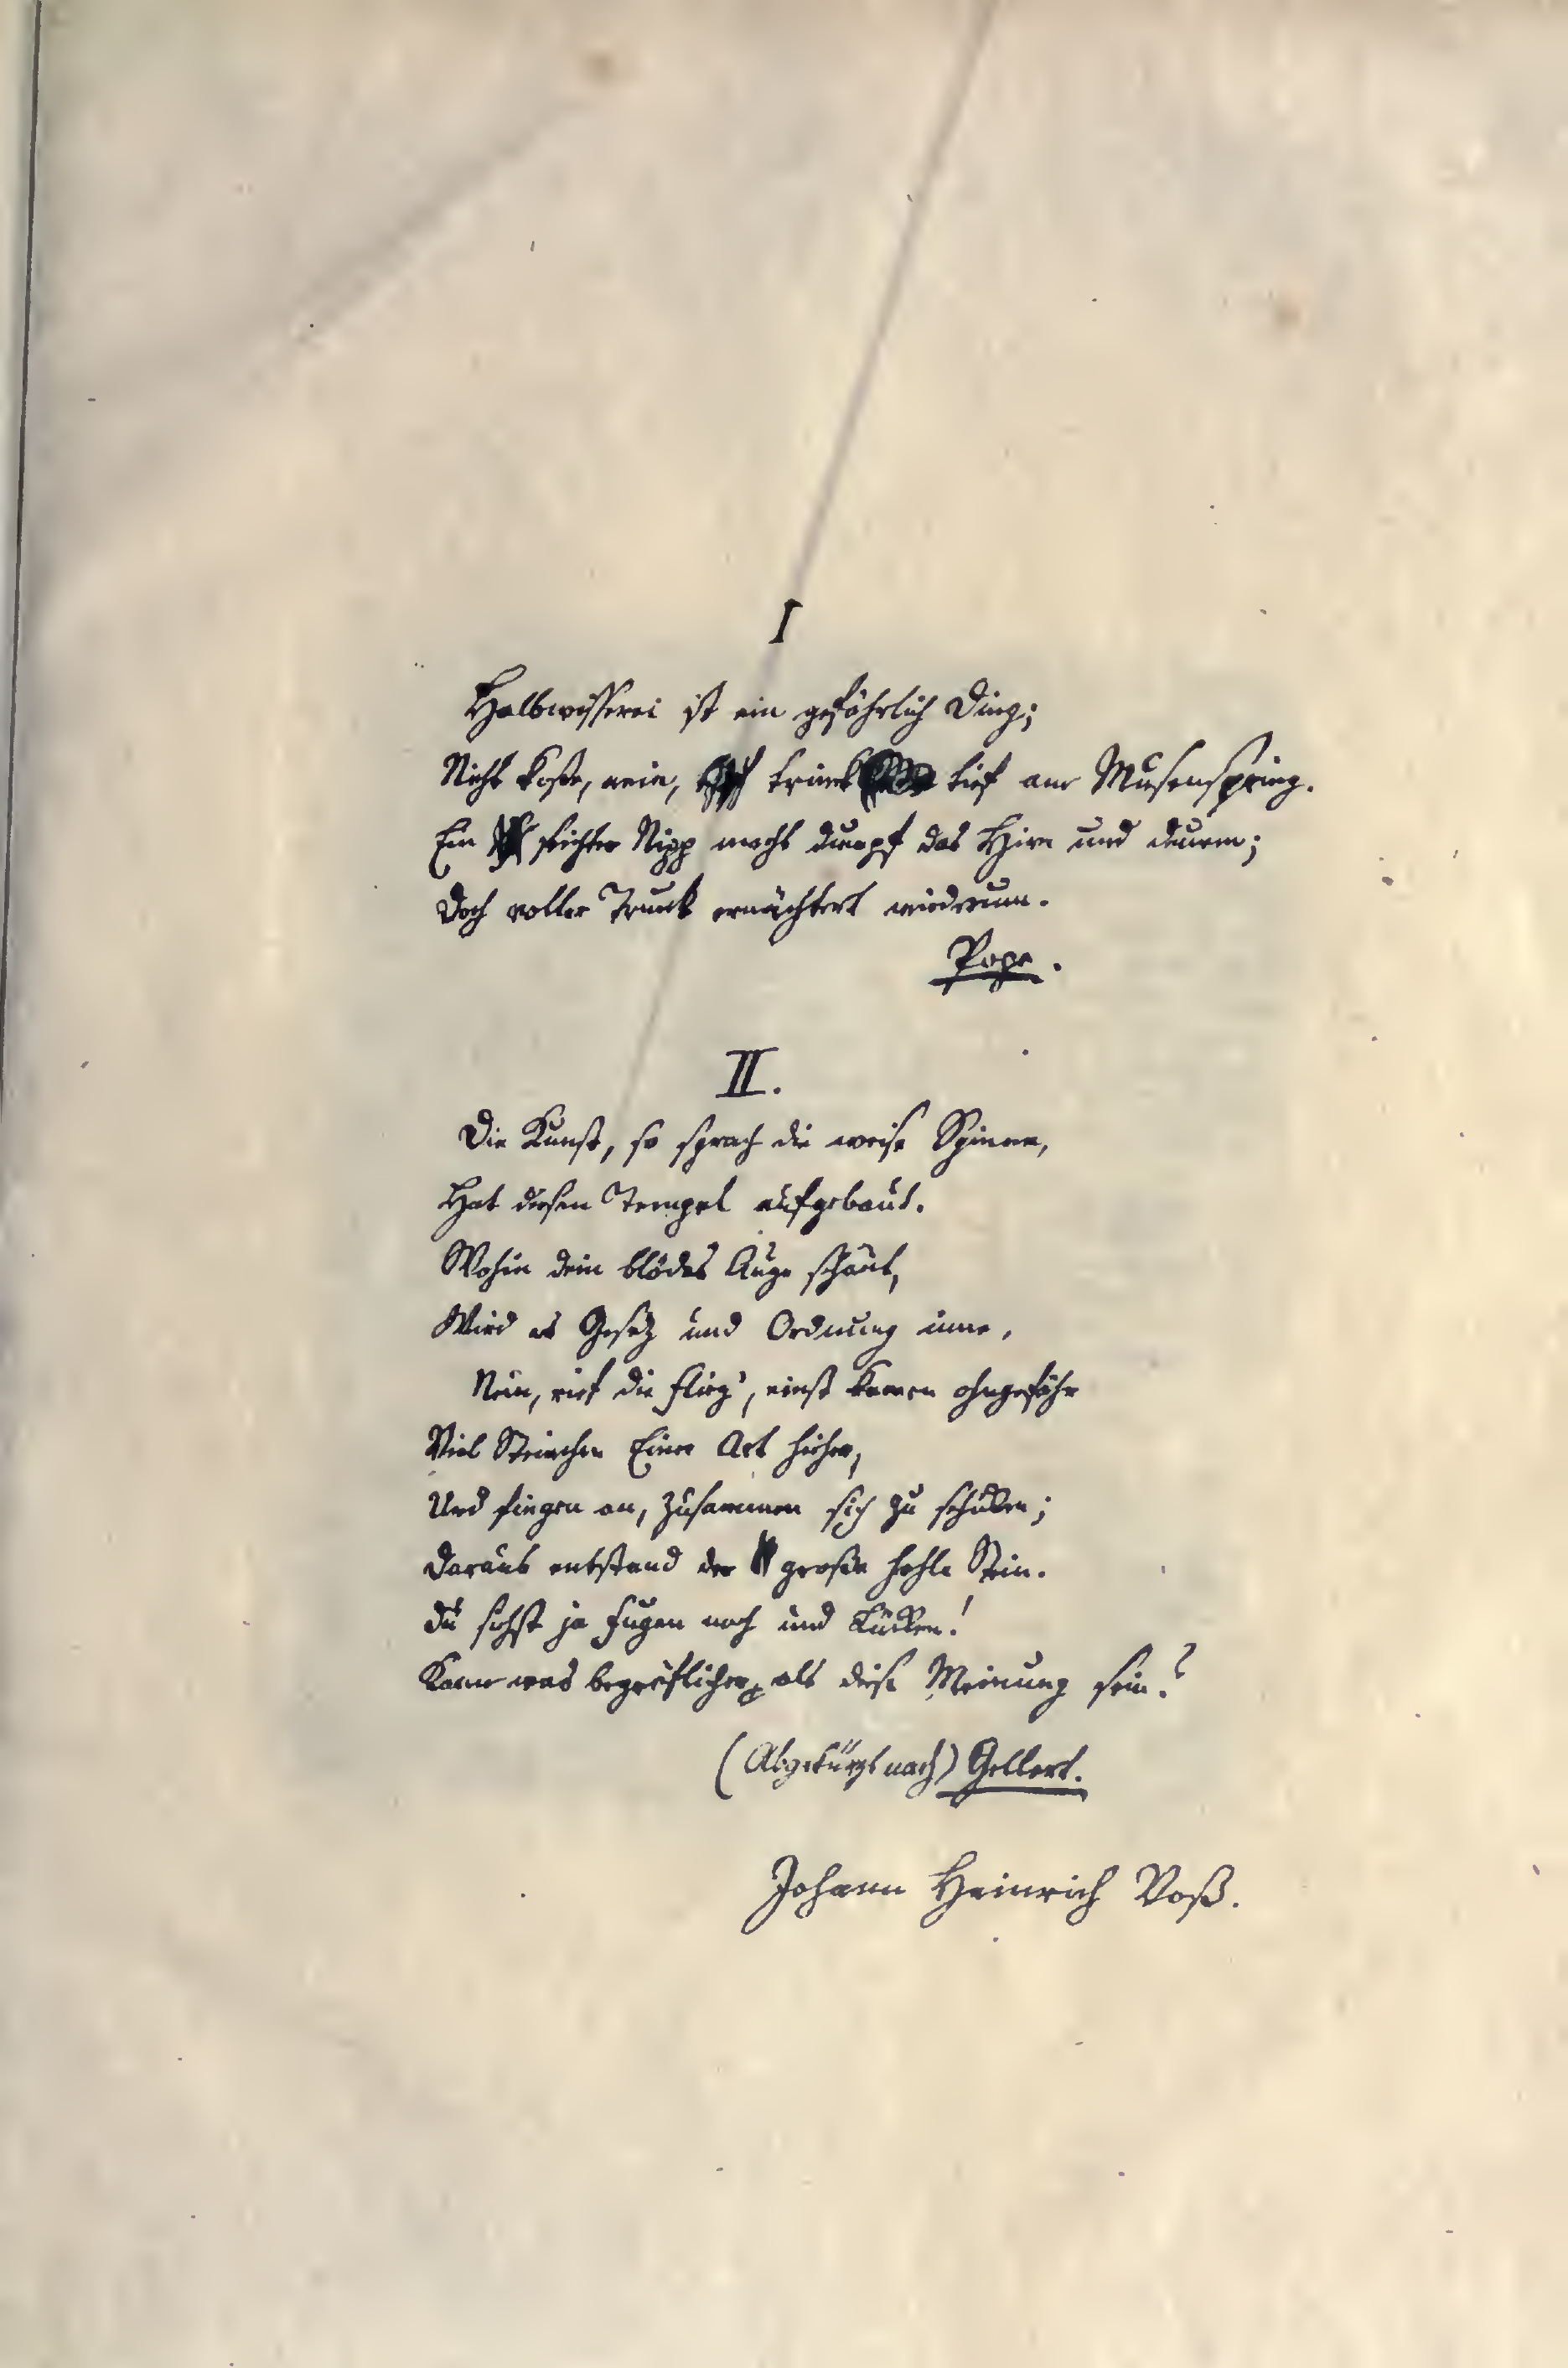 I
Halbwisserei ist ein gefährlich Ding;
Nicht koste, nein, trink tief am Musenspring.
Ein seichter Nipp macht dumpf das Hirn und dumm;
Doch voller Trunk ernüchtert wiederum.
Pope.
II.
Die Kunst, so sprach die weise Spinne,
Hat diesen Tempel aufgebaut.
Wohin dein blödes Auge schaut,
Wird es Gesez und Ordnung inne.
Nein, rief die Flieg', einst kamen ohngefähr
Viel Steinchen Einer Art hieher,
Und fingen an, zusammen sich zu schicken;
Daraus entstand der große hohle Stein.
Du siehst ja Fugen noch und Lücken!
Kann was begreiflicher, als diese Meinung sein?
(Abgekürzt nach) Gellert.
Johann Heinrich Voß.